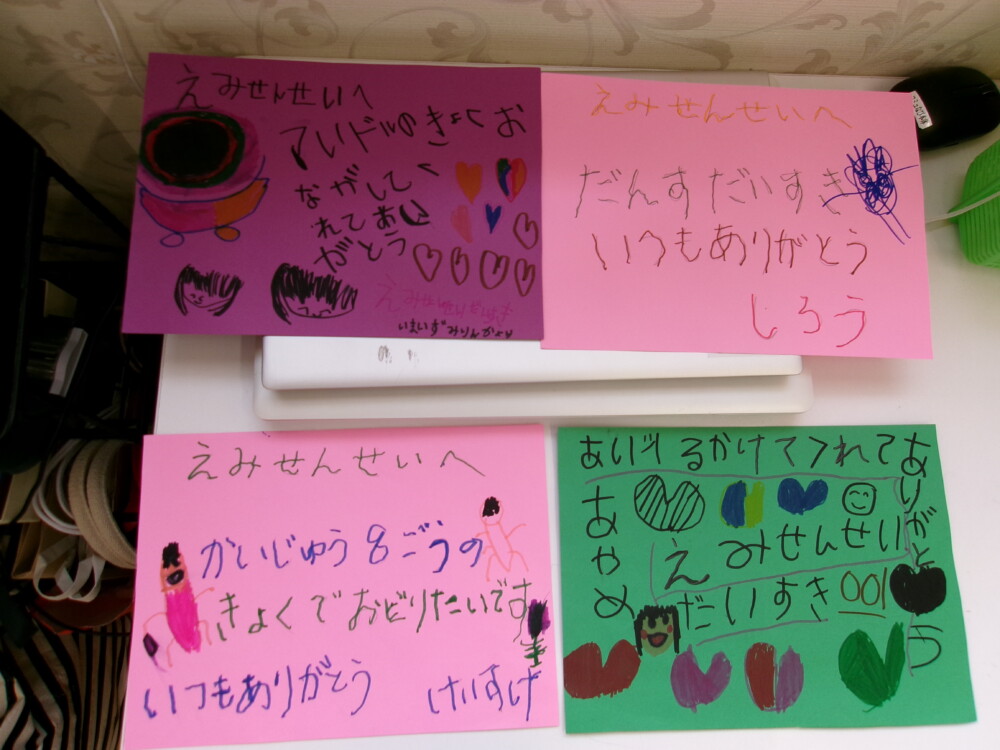 えみせんせいへ
アイドルのきょくお
ながしてく
れてあり
がとう
いまいずみりんかより
えみせんせいへ
だんすだいすき
いつもありがとう
しろう
えみせんせいへ
かいじゅう8ごうの
きょくでおどりたいです
いつもありがとう
けいすけ
あいどるかけてつれて
ありがとう
えみせんせい
だいすき001
あやめ